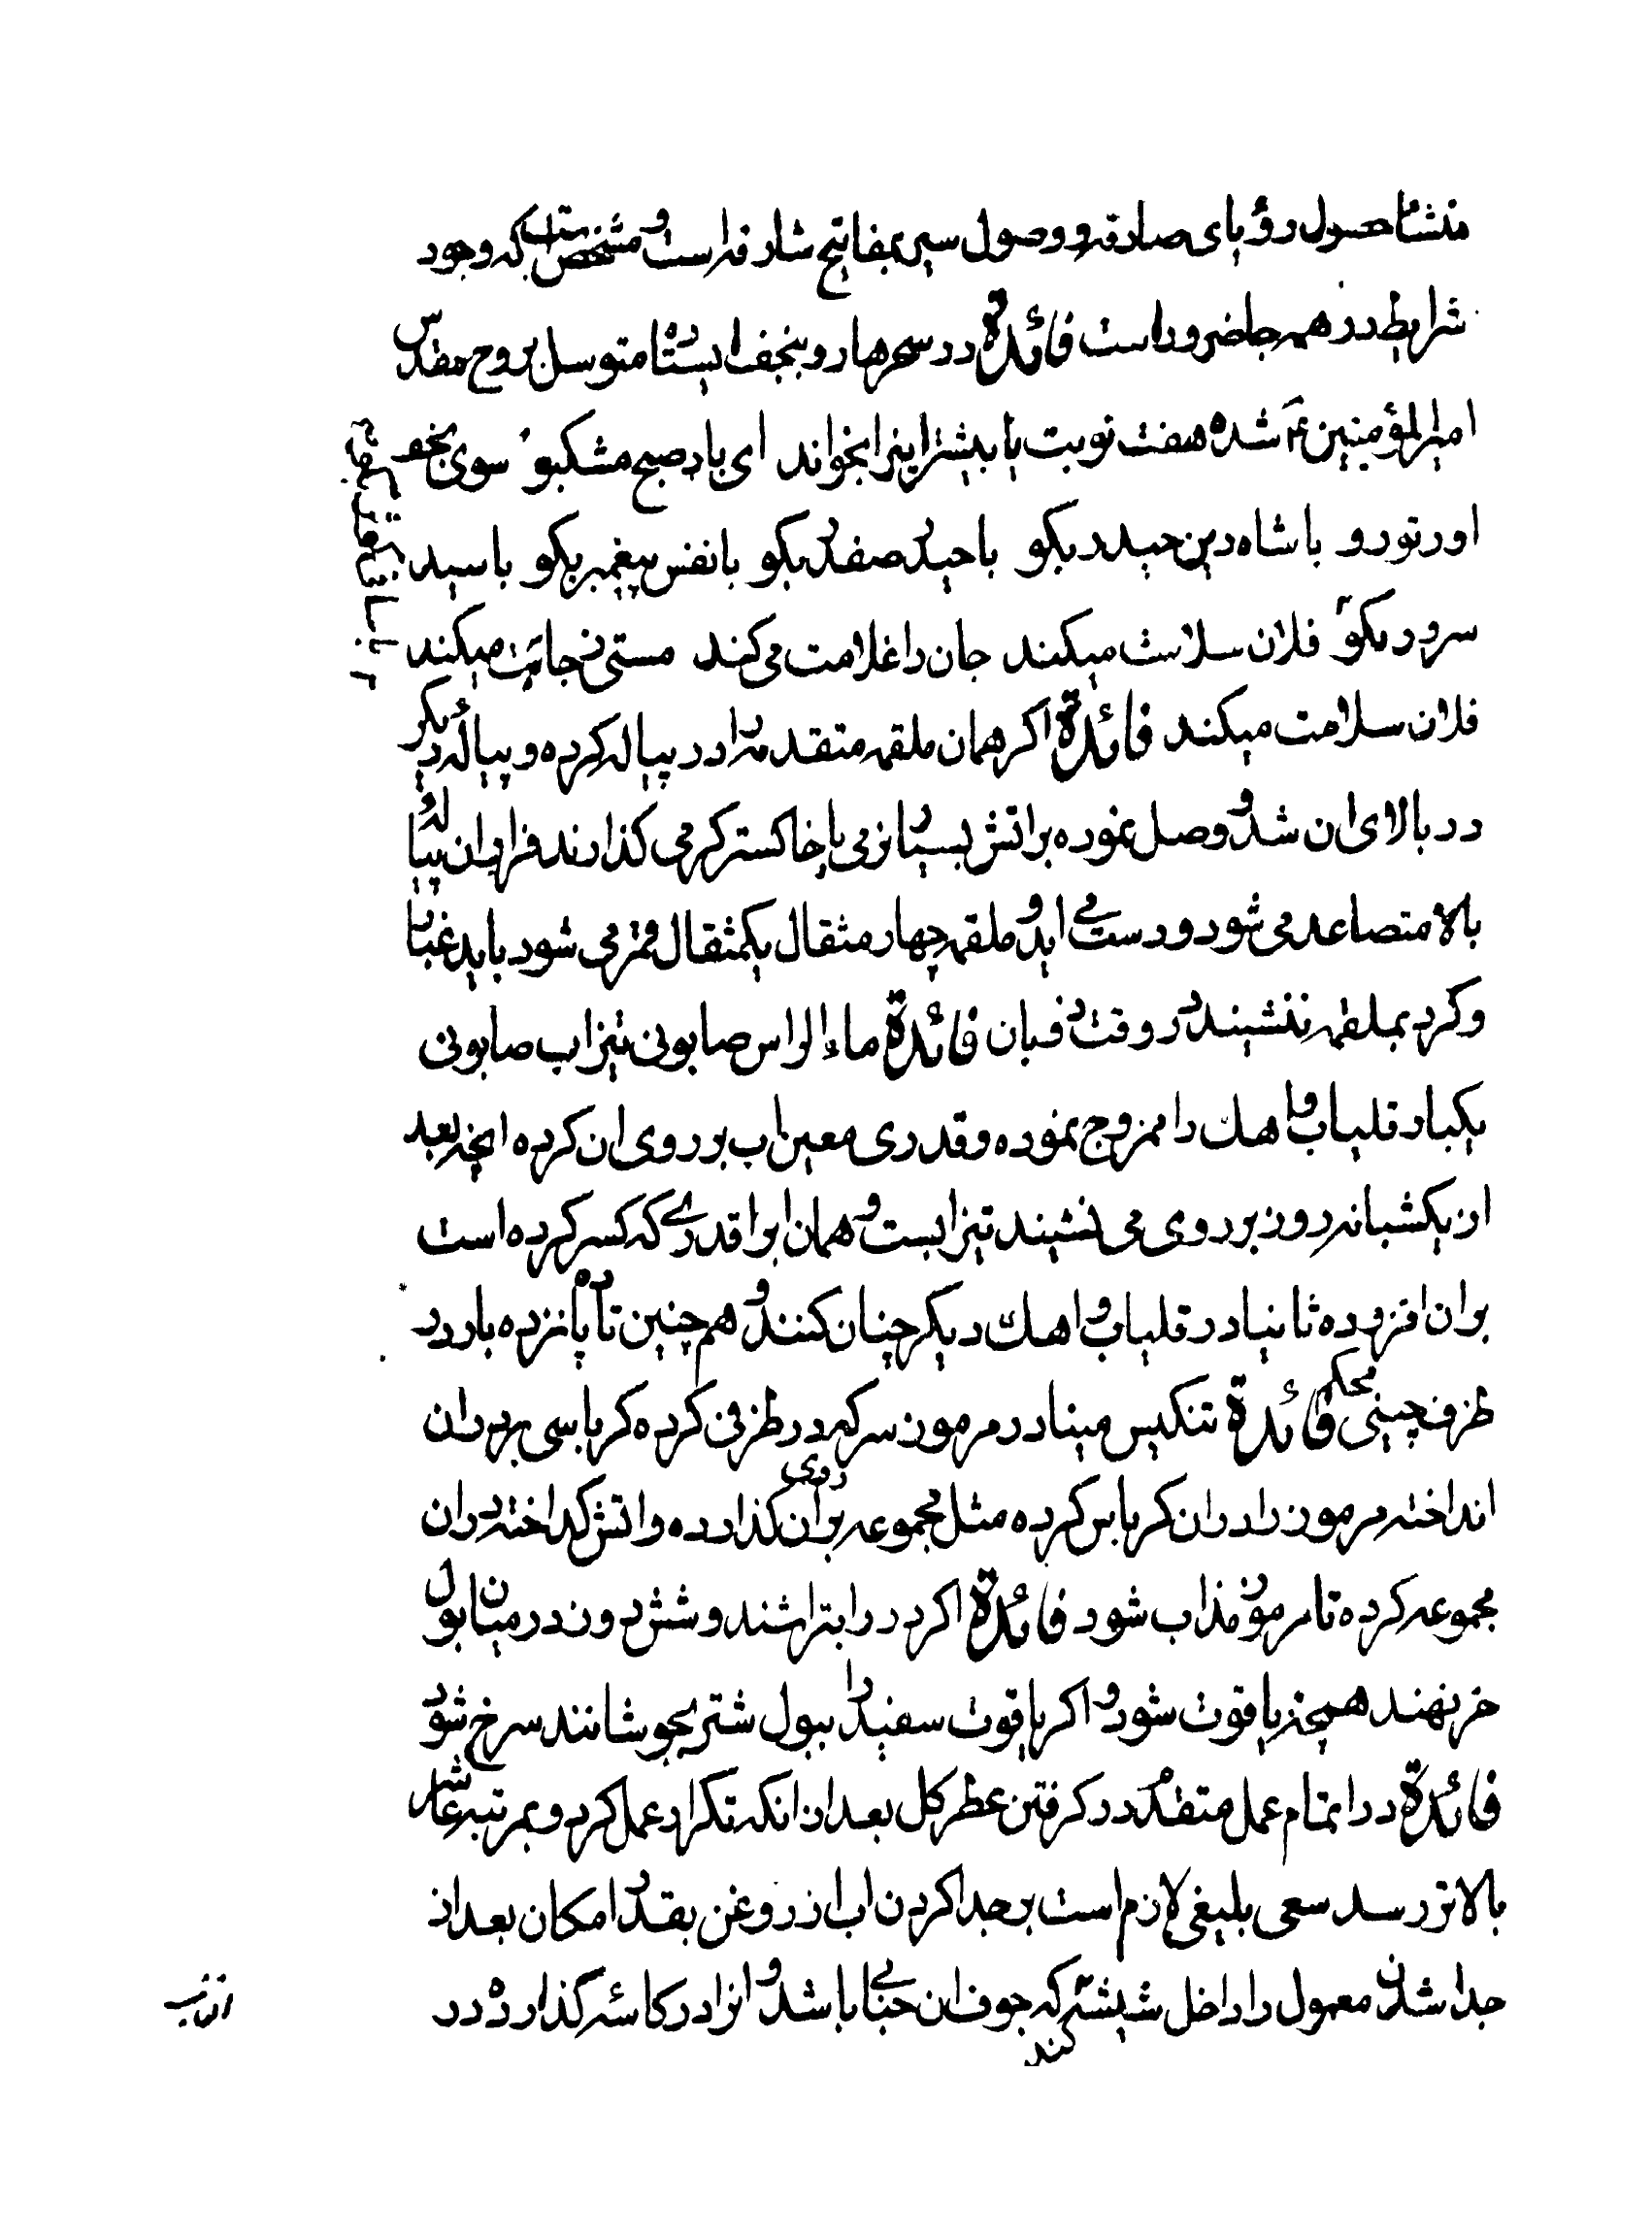 منشأ حصول رؤیای صادقه و وصول سیر بمفاتیح شارقه است و مشخص است که وجود
شرایط در همه جا ضرور است فائدة در سحرها رو بنجف ایستد متوسل بروح مقدس
امیرالمؤمنین ع شده هفت نوبت یا بیشتر اینرا بخواند ای باد صبح مشکبو سوی نجف
اور تو رو با شاه دین حیدر بکو با حیدر صفدر بکو با نفس پیغمبر بکو با سید
سرور بکو فلان سلامت میکند جان را غلامت می کند مستی ز جامت میکند
فلان سلامت میکند فائدة اکر همان ملقمه متقدمه را در پیاله کرده و پیالهٔ دیکر
در بالای ان شد و وصل نموده بر اتش بسیار نرمی یا خاکستر کرمی کذارند فرار ان پیاله و
بالا متصاعد می شود و درست می اید و ملقمه چهار مثقال یکمثقال قمر می شود باید غبار
وکرد بملقمه ننشیند در وقت ذوبان فائدة ماء الراس صابونی تیزاب صابونی
یکبار قلیاب و اهك را ممزوج نموده و قدری معین اب بر روی ان کرده انچه بعد
از یکشبانه روز بر روی می نشیند تیزابست و همان ابرا قدری که کسر کرده است
بران افزوده ثانیا در قلیاب و اهك دیکر چنان کنند و هم چنین تا پانزده بار در
ظرف چینی محکم فائدة تنکیس مینا در مرموز سرکه در ظرفی کرده کرباسی بر ان
انداخته مرموز را در ان کرباس کرده مثل مجموعه بر روی ان کذارده و اتش کداخته در ان
مجموعه کرده تا مرموز مذاب شود فائدة اکر در را بتراشند و شش روز در میان بول
خر نهند همچه یاقوت شود و اکر یاقوت سفید را ببول شتر بجوشانند سرخ شود
فائدة در اتمام عمل متقدم در کرفتن عطر کل بعد از انکه تکرار عمل کرد و بمرتبه عاشر
بالاتر رسد سعی بلیغی لازم است بر جدا کردن اب از روغن بقدر امکان بعد از
جدا شدن معمول را داخل شیشهٔ کند که جوف ان حبابی باشد و انرا در کاسهٔ کذارده در
افتاب